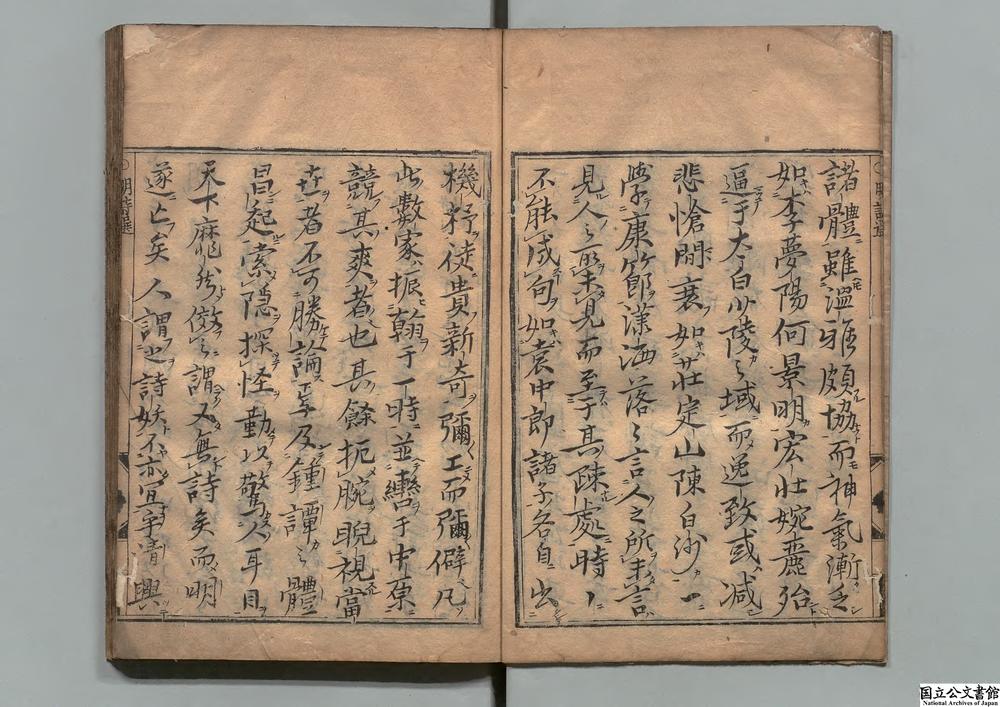 諸體雖溫雅頗協而神氣漸乏
如李夢陽何景明宏壯婉麗殆
逼于太白少陵之域而逸致或減
悲愴間衰如莊定山陳白沙一
學康節瀟洒落々言人之所未言
見人之未見而至于其疎處時々
不能成句如袁中郎諸子各自出
機杼徒貴新奇彌工而彌僻凡
此數家振翰于一時並轡于中原
競其爽者也其餘扼腕睨視當
世者不可勝論焉及鍾譚之體
昌起索隱探怪動以驚人耳目
天下靡然傚之謂又無詩矣而明
遂亡矣人謂之詩妖不亦宜乎清興
明詩選
国立公文書館
National Archives of Japan